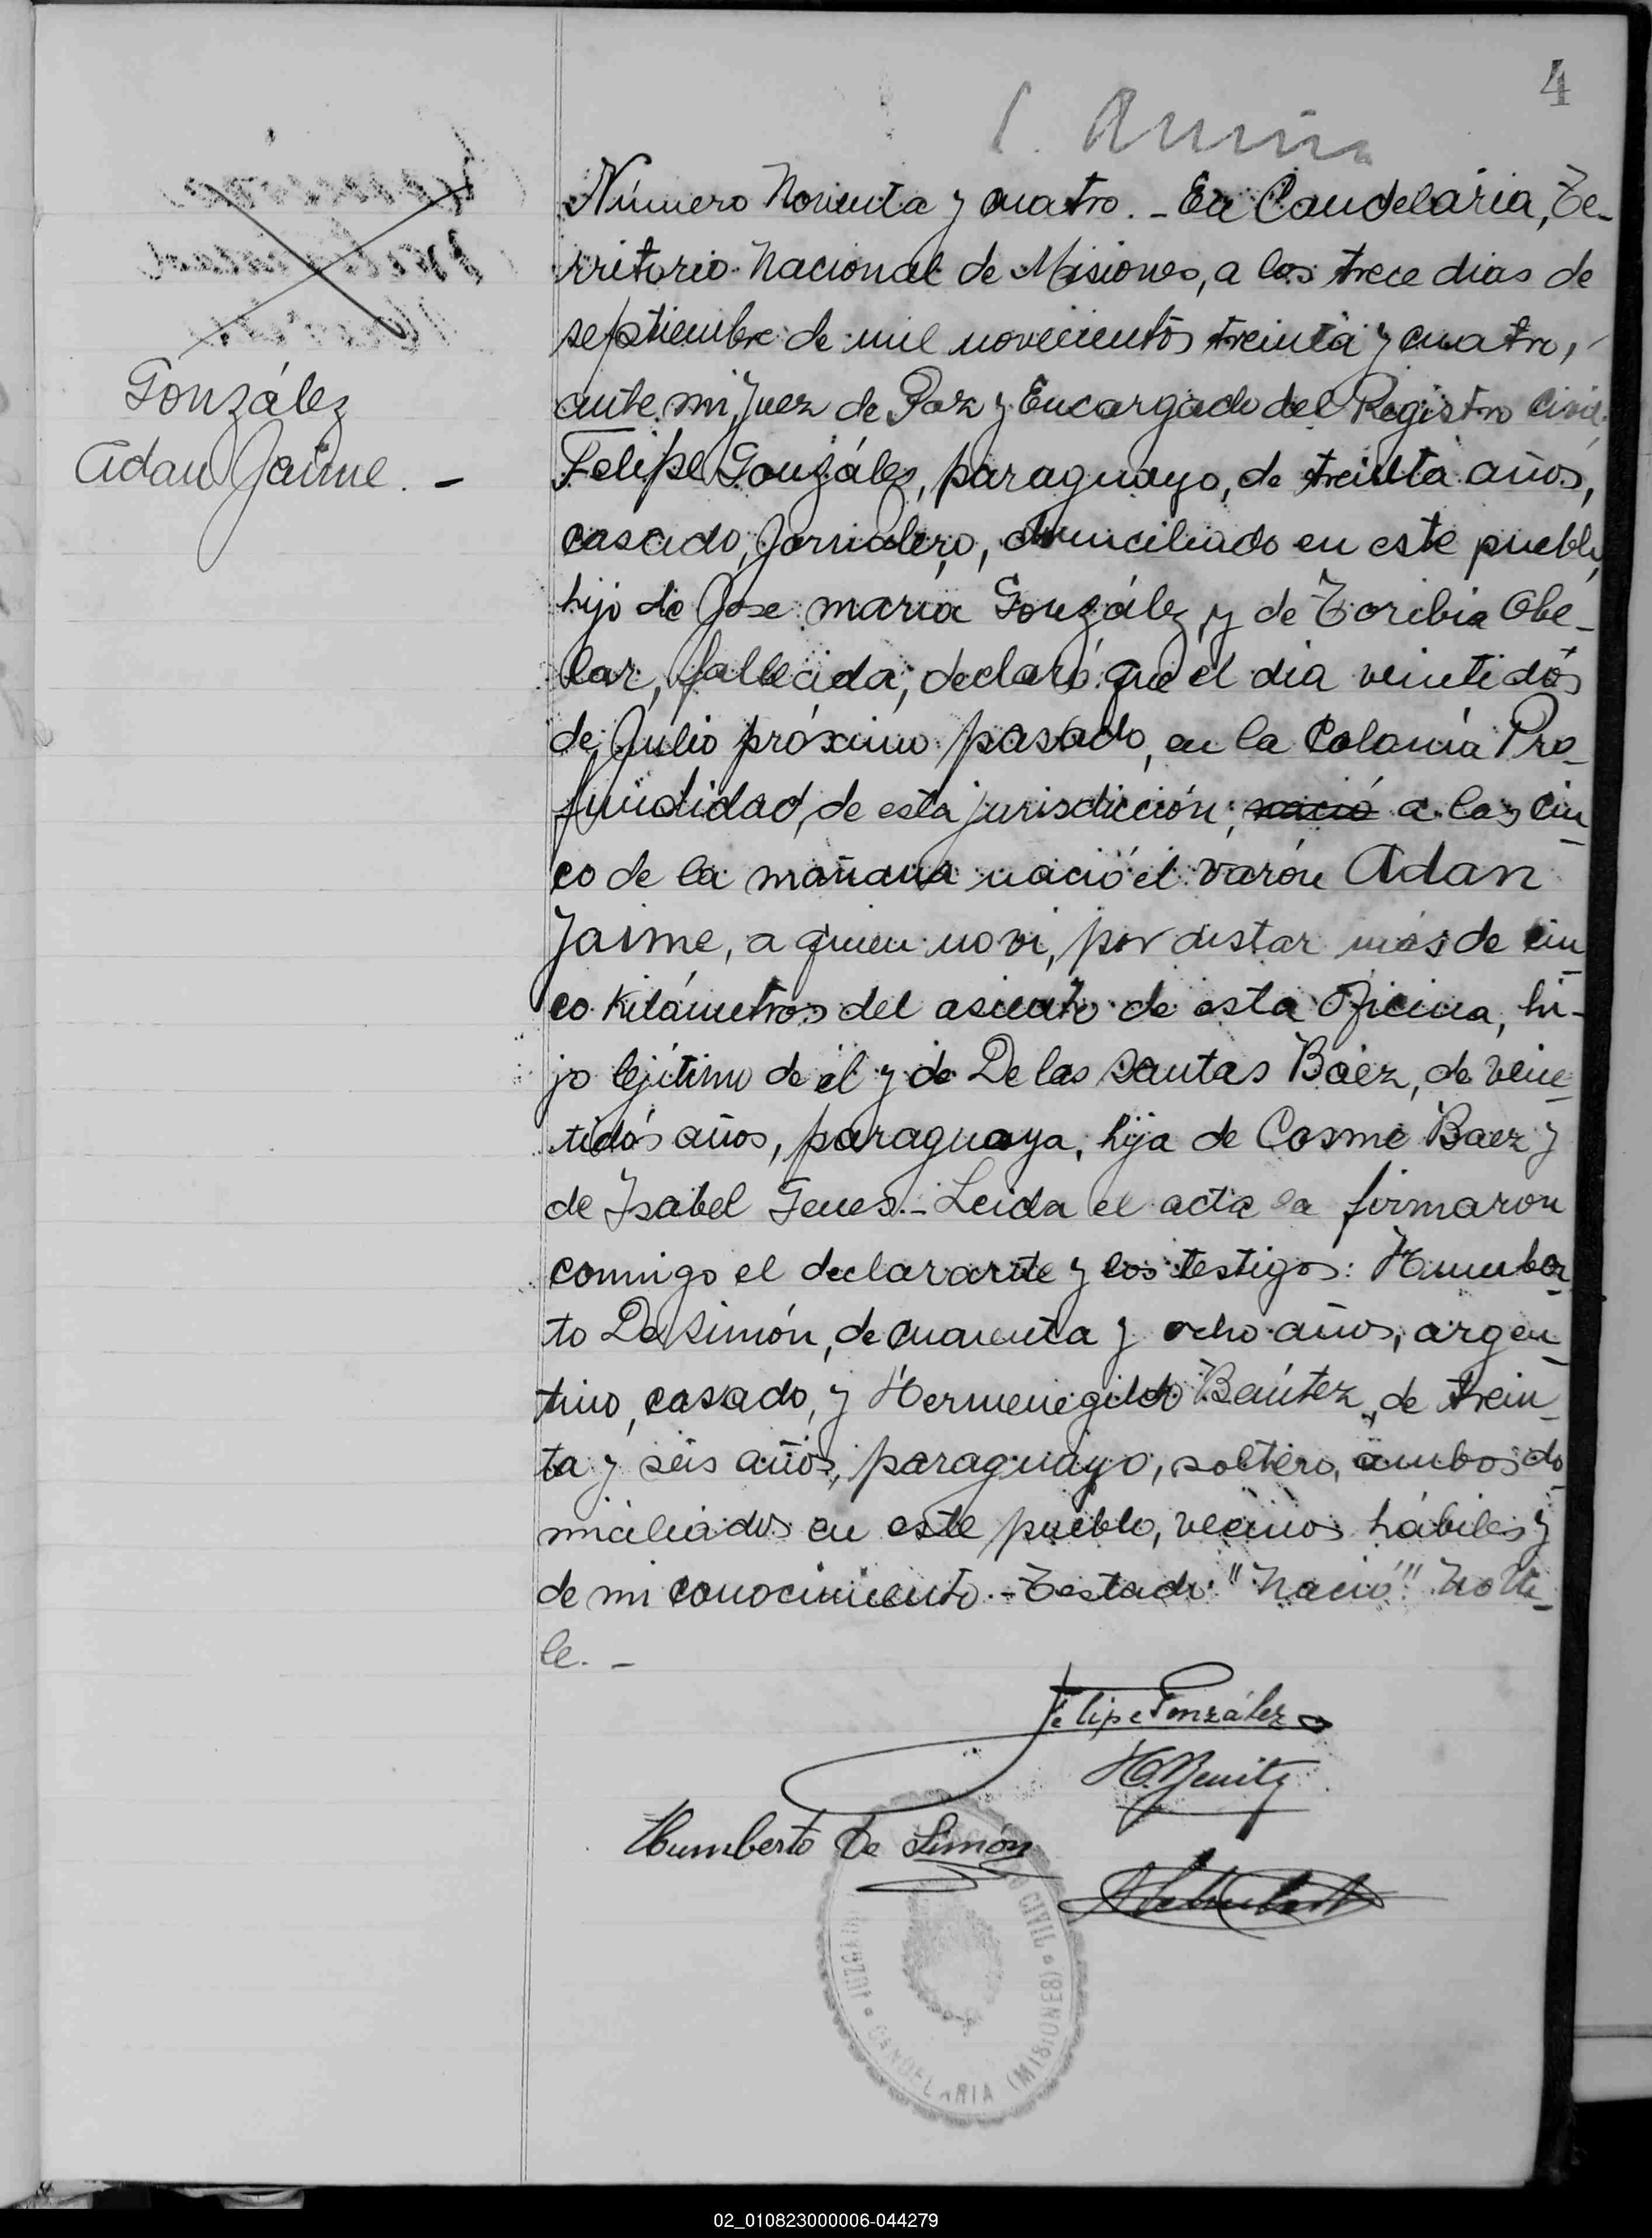 4
Número Noventa y cuatro. - En Candelaria, Te-
rritorio Nacional de Misiones, a los trece dias de
septiembre de mil novecientos treinta y cuatro,
ante mi, Juez de Paz y Encargado del Registro Civil,
Felipe González, paraguayo, de treinta años,
casado, Jornalero, domiciliado en este pueblo,
hijo de Jose maria González y de Toribia Obe-
lar, fallecida, declaró: que el dia veintidós
de Julio próximo pasado, en la Colonia Pro-
fundidad, de esta jurisdicción, nació a las cin-
co de la mañana nació el varón Adan
Jaime, a quien no vi, por distar más de cin-
co Kilómetros del asiento de esta Oficina, hi-
jo lejítimo de él y de De las Santas Báez, de vein-
tidós años, paraguaya, hija de Cosme Baez y
de Isabel Genes. - Leida el acta la firmaron
conmigo el declarante y los testigos: Humber-
to De Simón, de cuarenta y ocho años, argen-
tino, casado, y Hermenegildo Benítez, de trein-
ta y seis años, paraguayo, soltero, ambos do-
miciliados en este pueblo, vecinos hábiles y
de mi conocimiento. - Testado: "Nació": No va-
le. -
González
Adan Jaime. -
Felipe González
H. Benitz
Humberto de Simón
JUZGADO CIVIL • CANDELARIA (MISIONES)
02_010823000006-044279